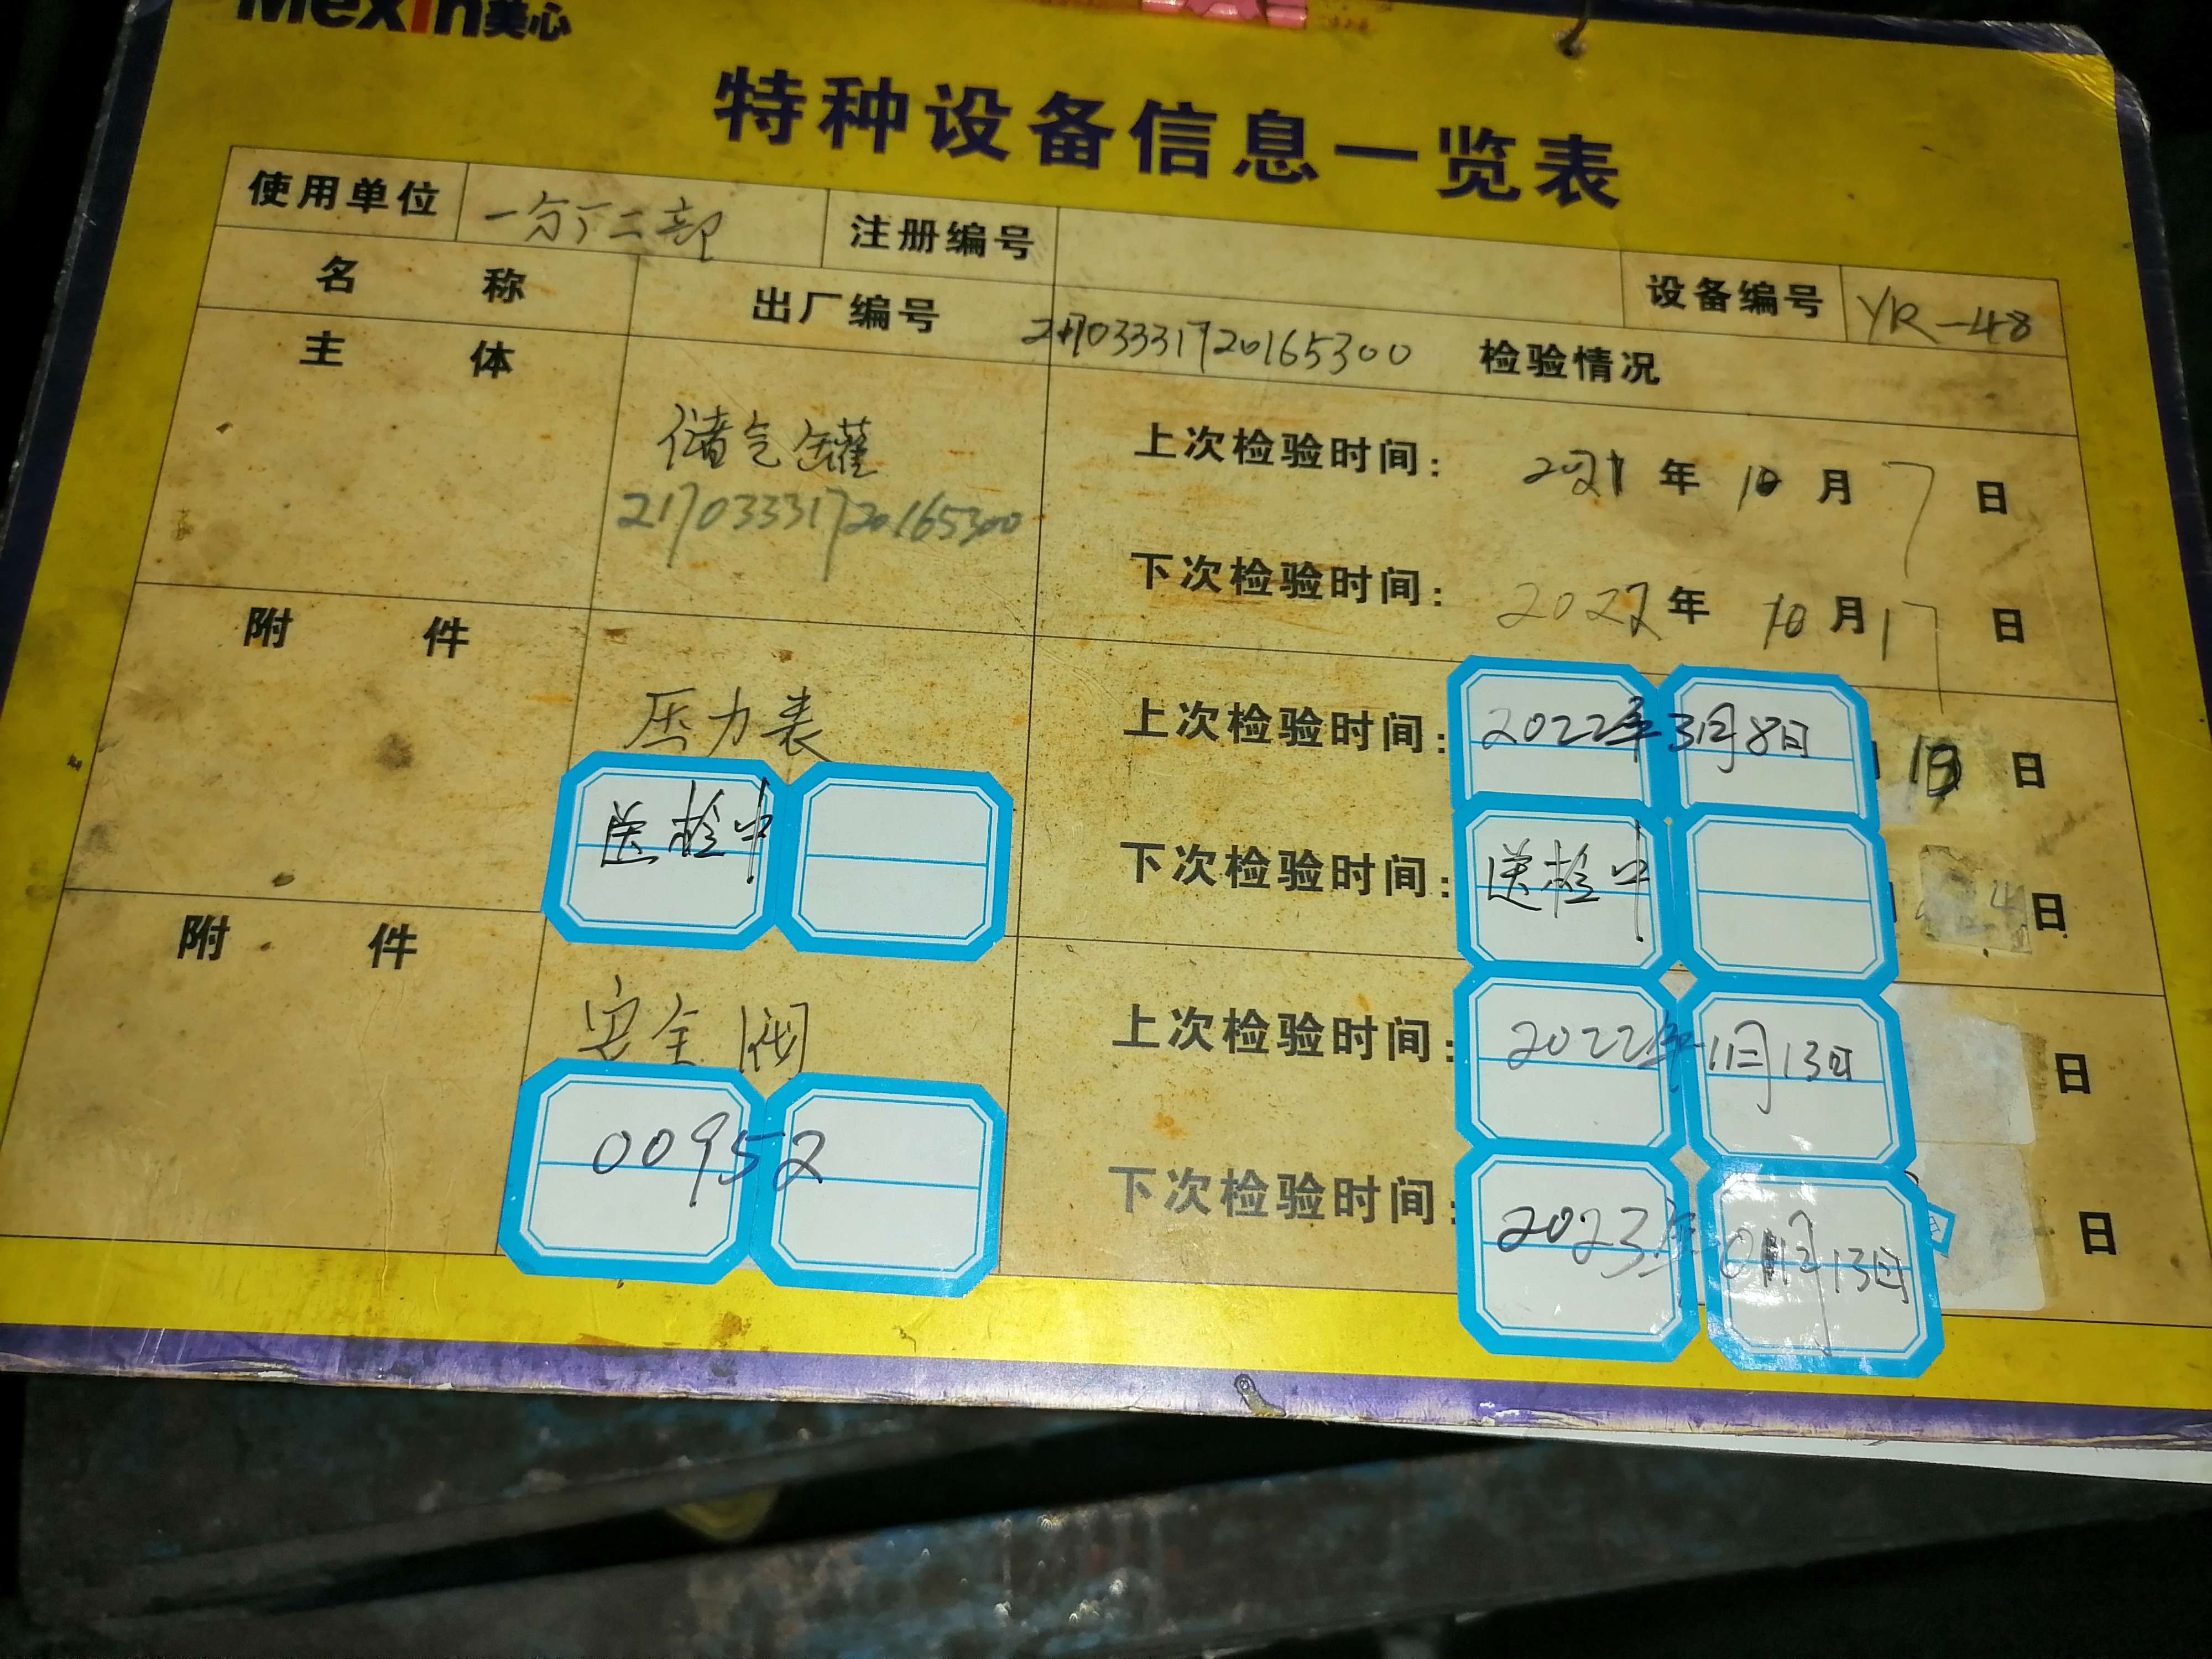 Mexin美心
特种设备信息一览表
使用单位 一分厂二部 注册编号 设备编号 YR-48
名 称 出厂编号 21703331720165300 检验情况
主 体 储气罐 上次检验时间: 2021 年 10 月 7 日
21703331720165300
下次检验时间: 2022 年 10 月 17 日
附 件 压力表 上次检验时间: 2022年3月8日 日
送检中 下次检验时间: 送检中 日
附 件 安全阀 上次检验时间: 2022年1月13日 日
00952 下次检验时间: 2023年 13日 日